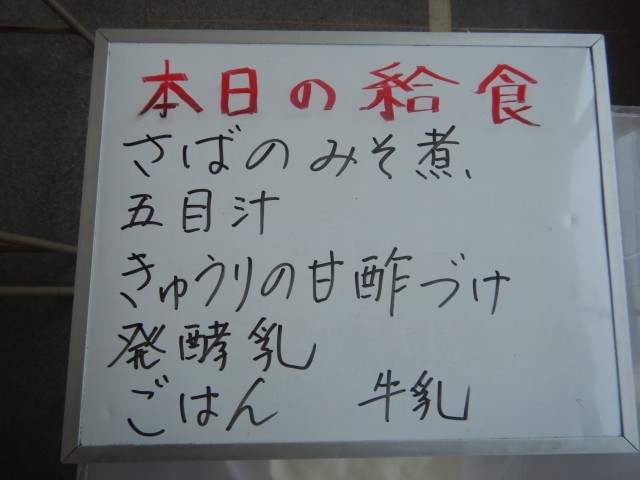 本日の給食
さばのみそ煮
五目汁
きゅうりの甘酢づけ
発酵乳
ごはん 牛乳